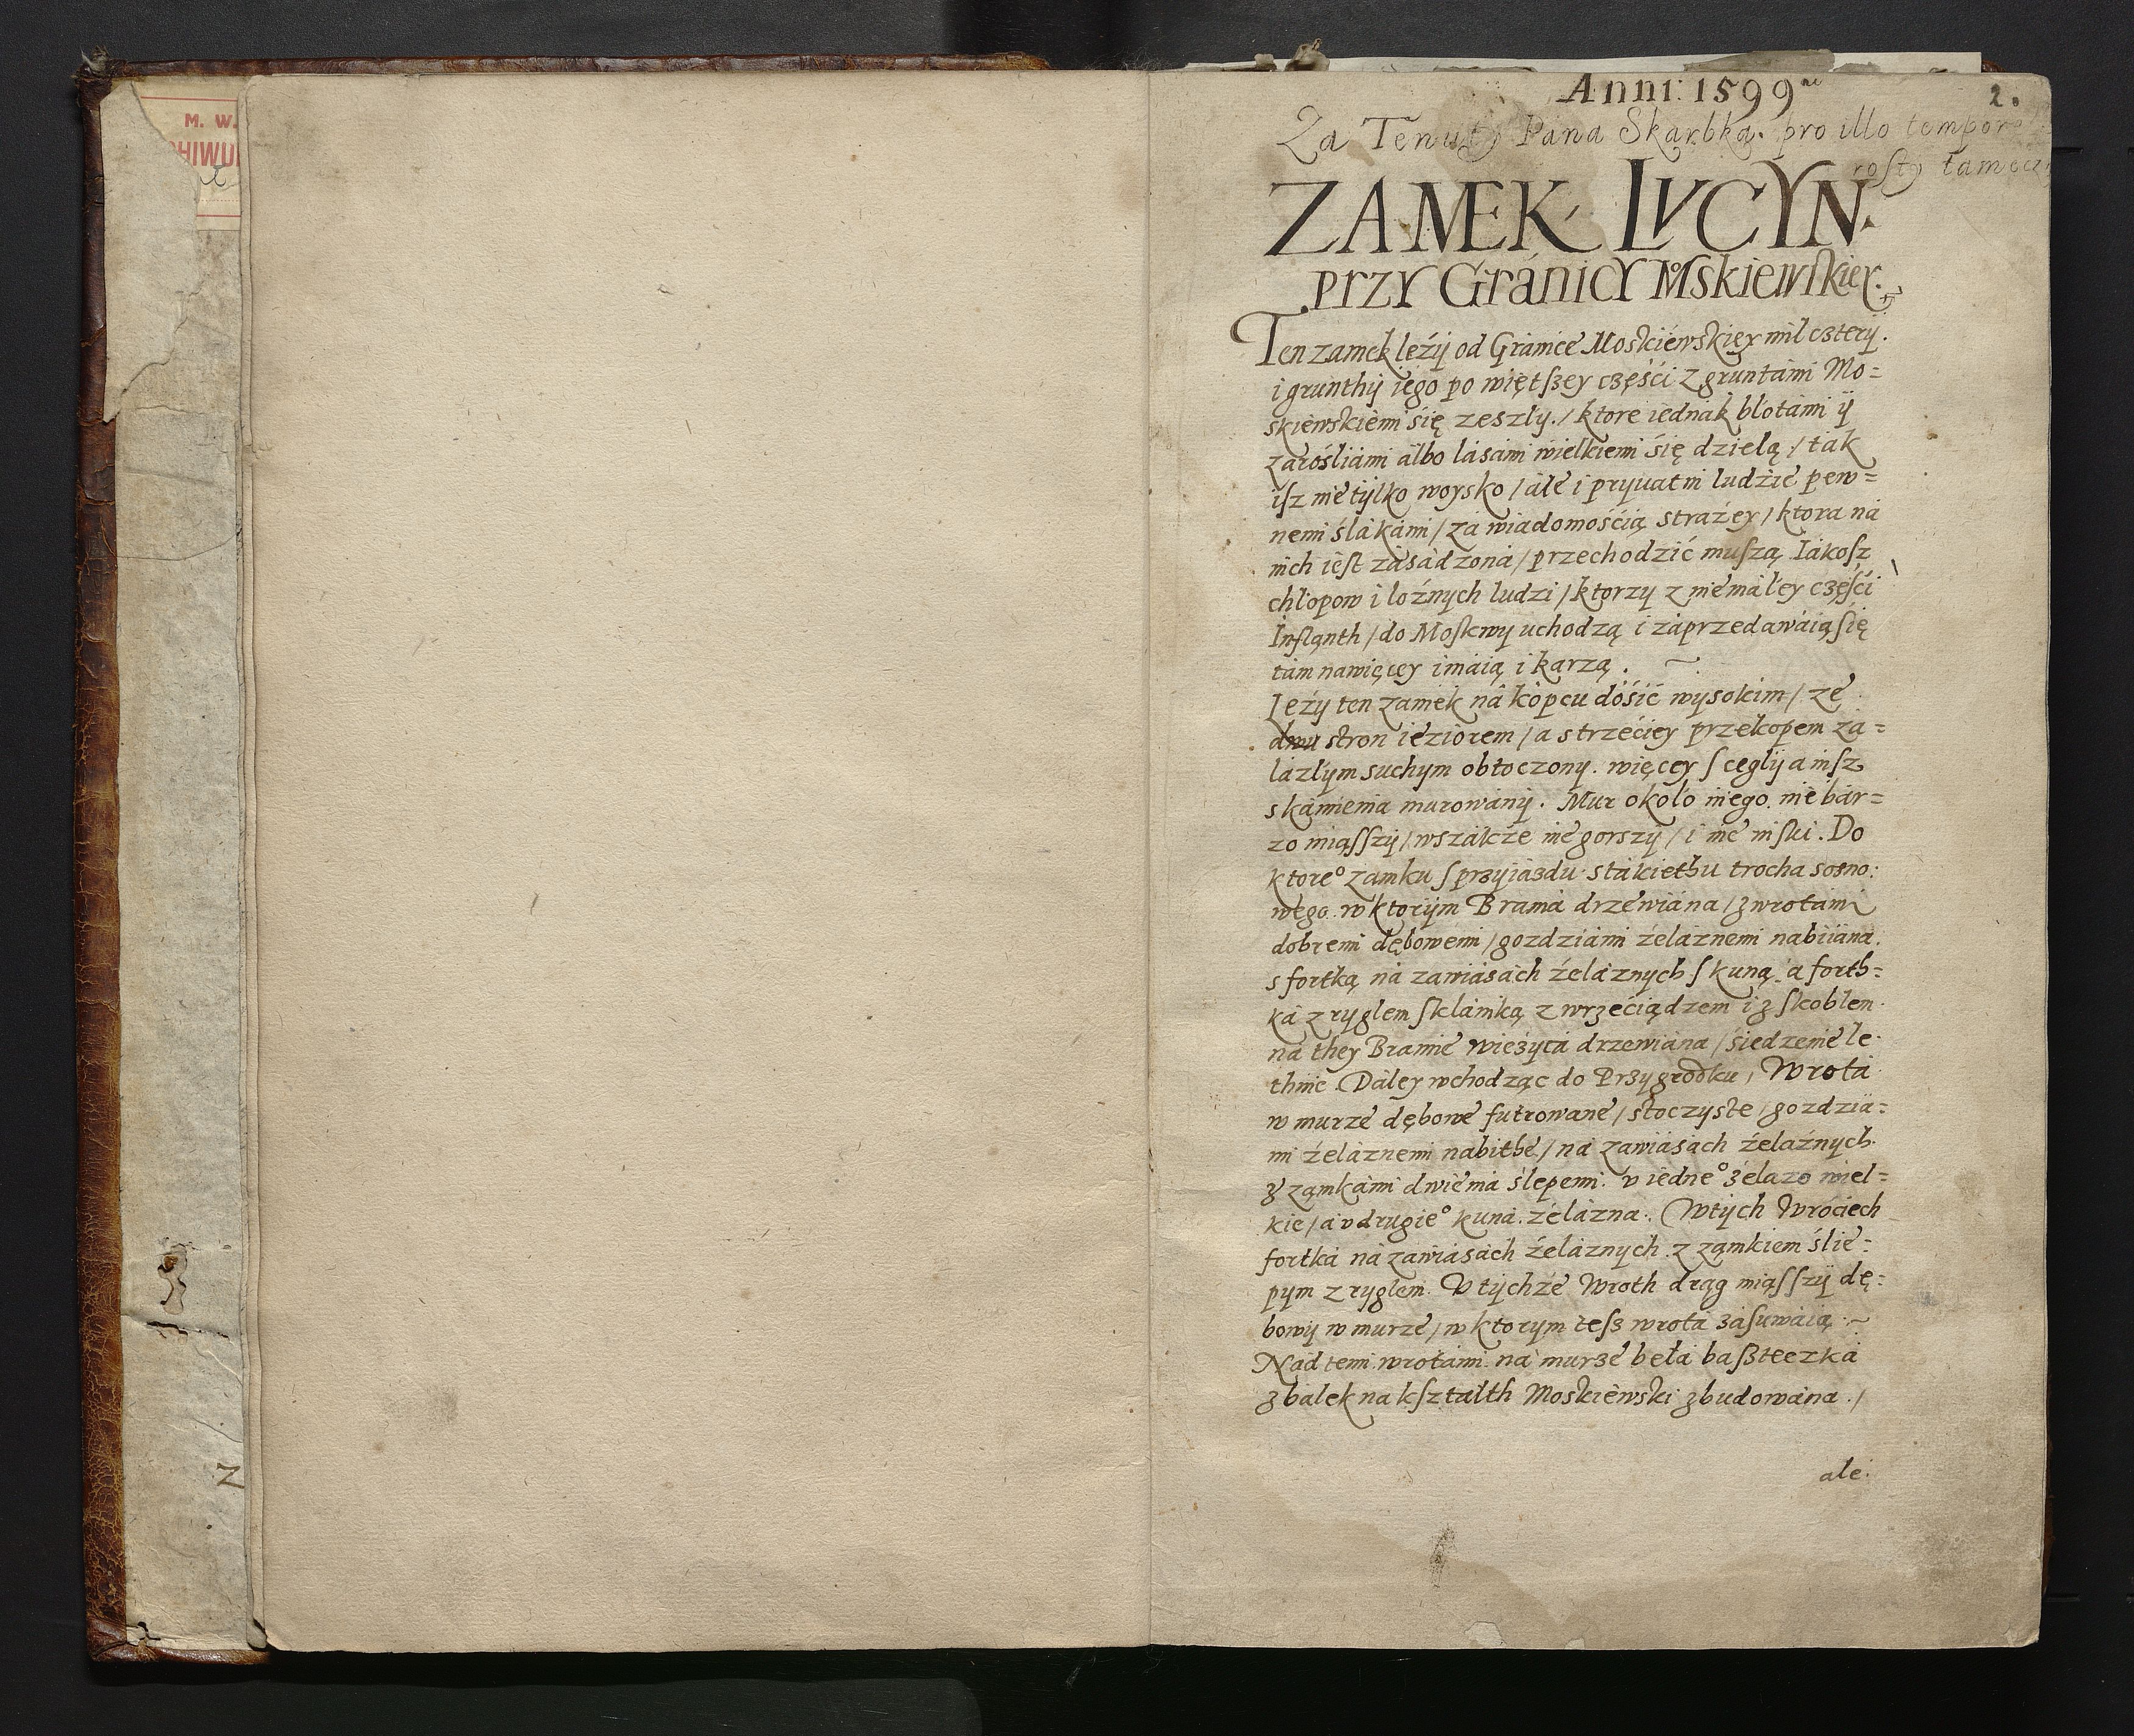 M. W.
HIWU
Anni: 1599
2.
Za Tenuty Pana Skarbka. pro illo tempore
rosty tamecz
ZAMEK LVCYN.
przy Gránicy Moskiewskiey.
Ten zamek leży od Gránice Moskiewskiey mil cztery.
i grunthy iego po więtszey części z gruntámi Mo=
skiewskiemi się zeszly. / ktore iednák blotámi y
zaroślami álbo lásámi wielkiemi się dzielą / ták
isz nie tylko woysko / ále i pryuatni ludzie pew=
nemi ślakámi / zá wiadomością strażey / ktora ná
nich iest zásádzoná / przechodzić muszą Iákosz
chlopow i loźnych ludzi / ktorzy z niemáley części
Inflanth / do Moskwy uchodzą i záprzedawáią się
tám nawięcey imáią i karzą.
Leży ten zamek ná kopcu dosić wysokim / ze
dwu stron ieziorem / a strzeciey przekopem zá=
lázlym suchym obtoczony. więcey s cegly a nisz
s kámienia murowány. Mur okolo niego nie bár=
zo miąsszy / wszákże nie gorszy / i nie niski. Do
ktore° zamku s przyiázdu stákiethu trocha sosno:
wego. w ktorym Bramá drzewiána / z wrotámi
dobremi dębowemi / gozdziámi żeláznemi nabiiána.
s fortką ná zawiásách żeláznych s kuną. a forth=
ká z ryglem s klámką z wrzeciądzem i z skoblem.
ná they Bramie wieżycá drzewiána / siedzenie le=
thnie. Dáley wchodząc do Przygrodku, Wrotá
w murze dębowe futrowane / stoczyste / gozdziá=
mi żeláznemi nabithe / ná zawiásách żeláznych
z zamkámi dwiemá ślepemi. v iedne° żelazo wiel=
kie / a v drugie° kuná żelázna. W tych Wrociech
fortká ná zawiásách żeláznych z zamkiem ślie=
pym z ryglem. V tychże Wroth drąg miąsszy dę=
bowy w murze / w ktorym tesz wrotá zásuwáią
Nad temi wrotámi ná murze belá baszteczká
z bálek na ksztalth Moskiewski zbudowána. /
ale